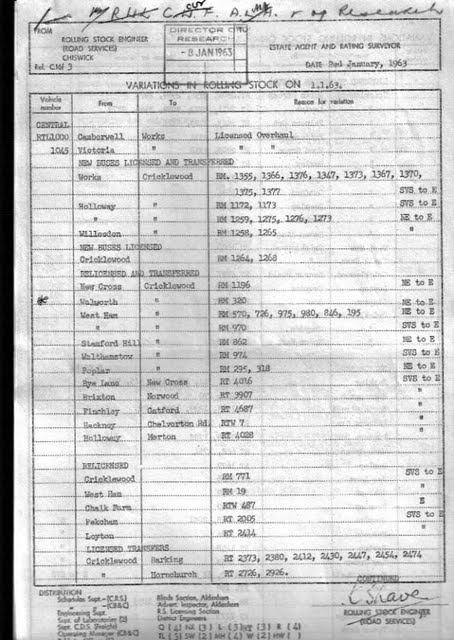 DIRECTOR C
RESEARCH
- 8 JAN 1963
FROM
ROLLING STOCK ENGINEER
(ROAD SERVICES)
CHISWICK
ESTATE AGENT AND RATING SURVEYOR
DATE 2nd January, 1963
VARIATIONS IN ROLLING STOCK ON 1.1.63.
Vehicle number From To Reason for variation
CENTRAL
RTL1000 Camberwell Works Licensed Overhaul
1045 Victoria " " "
NEW BUSES LICENSED AND TRANSFERRED
Works Cricklewood RM. 1355, 1366, 1376, 1347, 1373, 1367, 1370,
1375, 1377 SVS to E
Holloway " RM 1172, 1173 SVS to E
" " RM 1259, 1275, 1276, 1273 NE to E
Willesden " RM 1258, 1265 "
NEW BUSES LICENSED
Cricklewood RM 1264, 1268
RELICENSED AND TRANSFERRED
New Cross Cricklewood RM 1196 NE to E
Walworth " RM 320 NE to E
West Ham " RM 570, 726, 975, 980, 846, 195 NE to E
" " RM 970 SVS to E
Stamford Hill " RM 862 NE to E
Walthamstow " RM 974 SVS to E
Poplar " RM 295, 318 NE to E
Rye Lane New Cross RT 4016 SVS to E
Brixton Norwood RT 3907 "
Finchley Catford RT 4687 "
Hackney Chelverton Rd. RTW 7 "
Holloway Merton RT 4028 "
RELICENSED
Cricklewood RM 771 SVS to E
West Ham RM 19 "
Chalk Farm RTW 487 E
Peckham RT 2005 SVS to E
Leyton RT 2414 "
LICENSED TRANSFERS
Cricklewood Barking RT 2373, 2380, 2412, 2430, 2447, 2454, 2474
" Hornchurch RT 2726, 2926.
CONTINUED
DISTRIBUTION
Schedules Supt.-(C.R.S.)
Engineering Supt.
Supt. of Laboratories (2)
Supt. C.D.S. (Freight)
Blinds Section, Aldenham
Advert. Inspector, Aldenham
R.S. Licensing Section
District Engineers
ROLLING STOCK ENGINEER
(ROAD SERVICES)